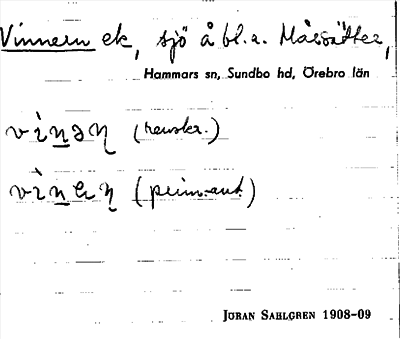 Vinnern ek, sjö å bl.a. Mårsätter,
Hammars sn, Sundbo hd, Örebro län
(renskr.)
(prim.ant.)
JÖRAN SAHLGREN 1908-09